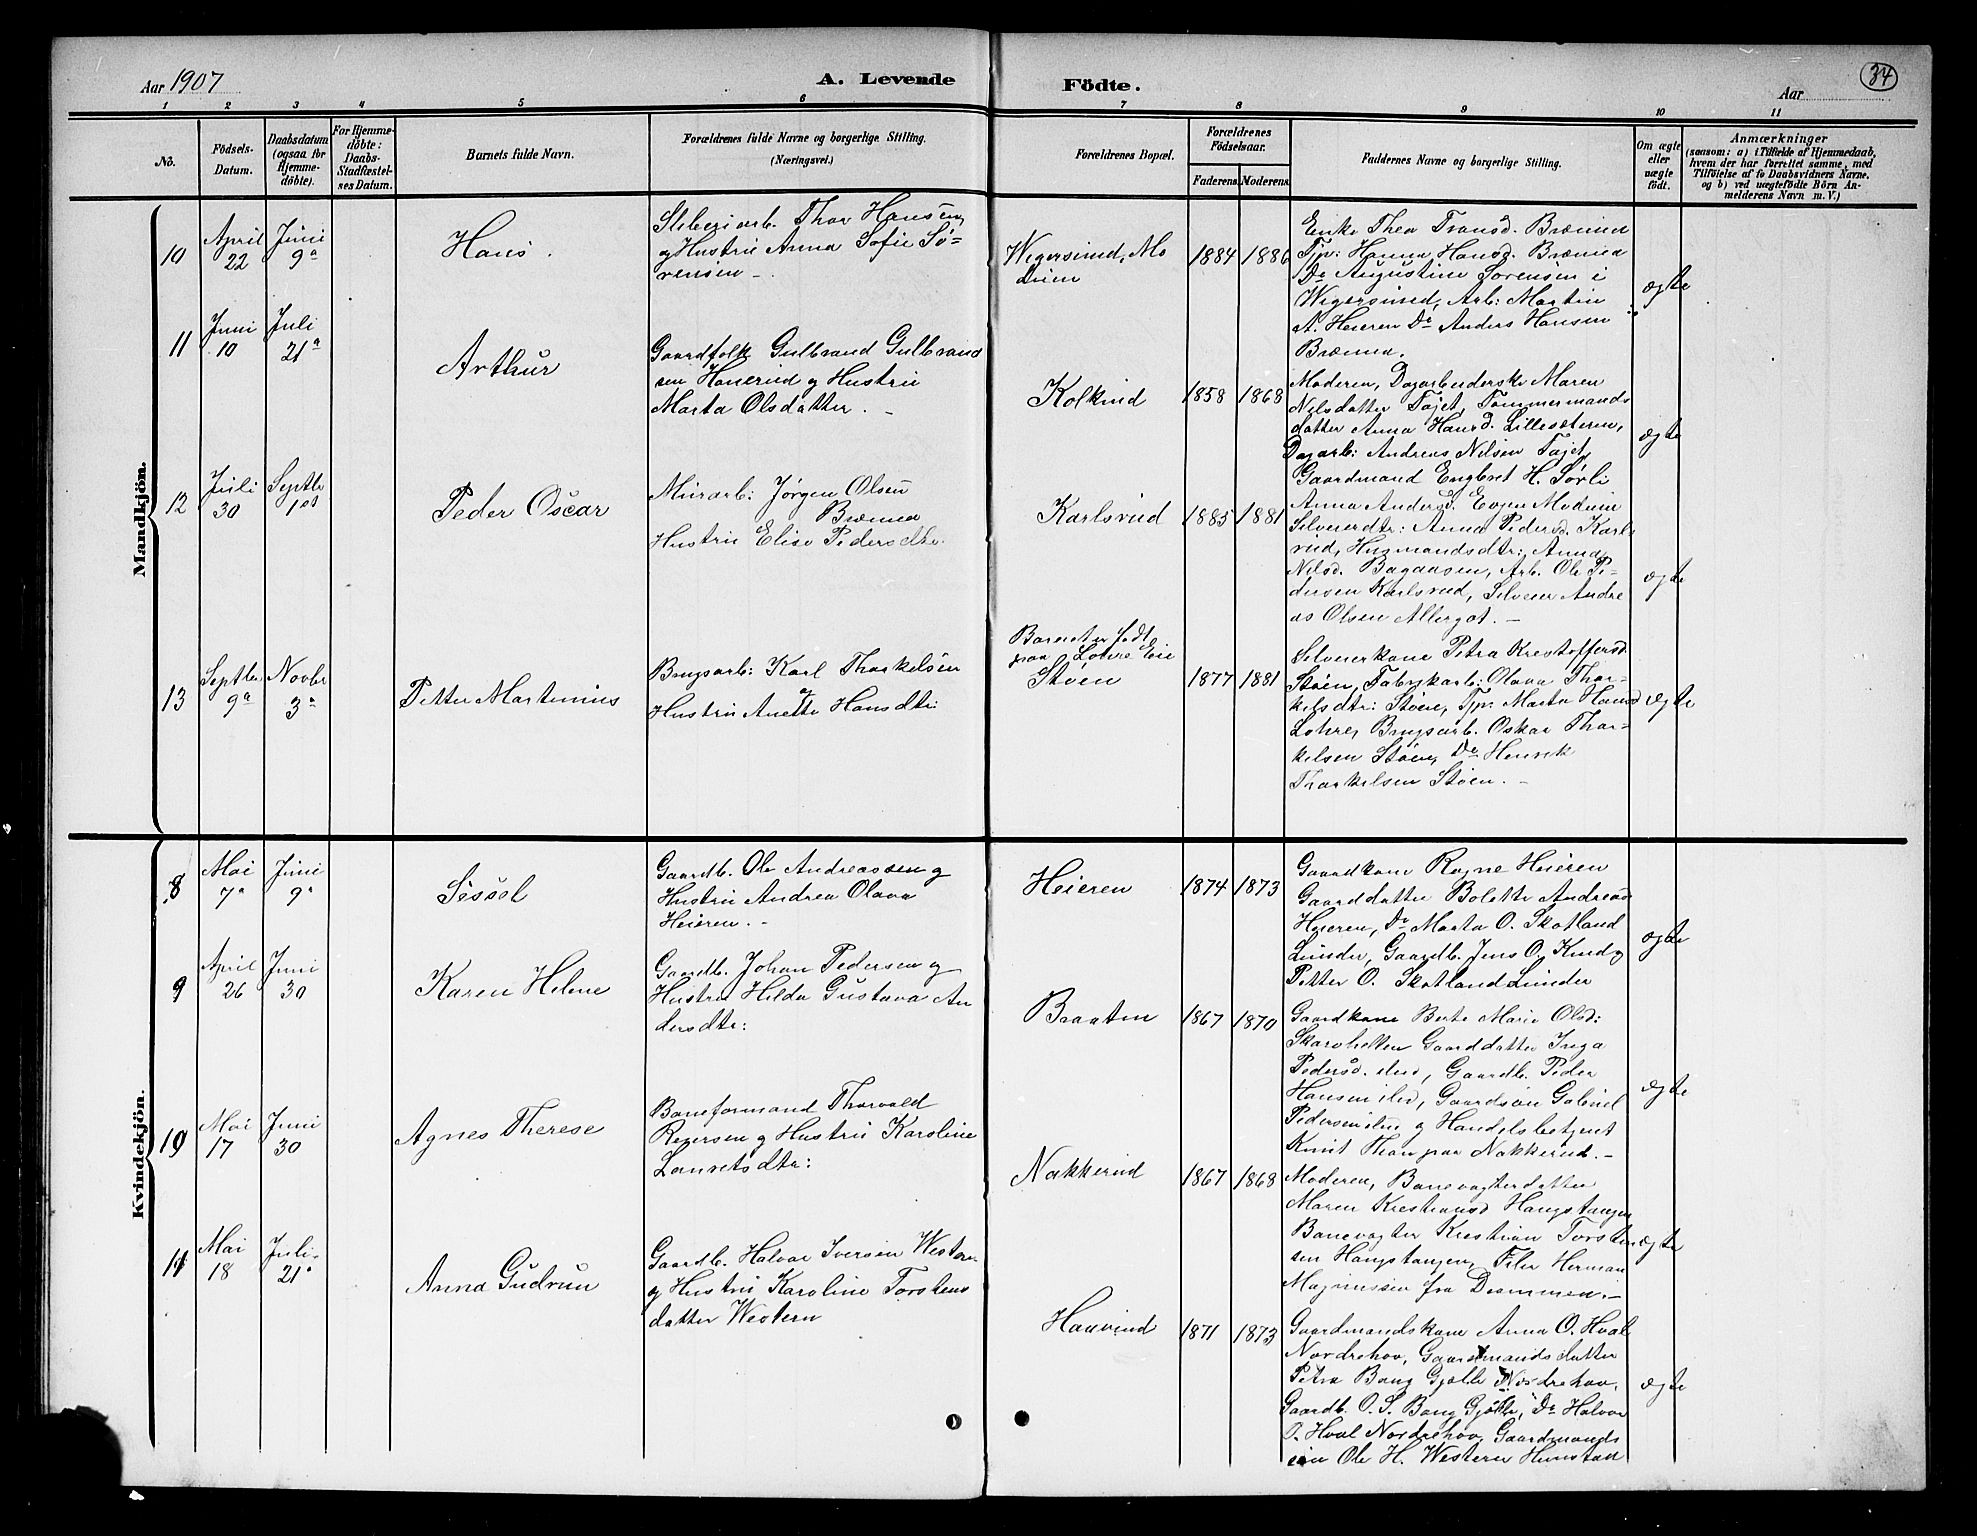 Aar 1907
A. Levende Födte.
34
Aar
1 2 3 4 5 6 7 8 9 10 11
No.
Födsels-
Datum.
Daabsdatum
(ogsaa for
Hjemme-
döbte).
For Hjemme-
döbte:
Daabs-
Stadfæstel-
ses Datum.
Barnets fulde Navn.
Forældrenes fulde Navne og borgerlige Stilling.
(Næringsvei.)
Forældrenes Bopæl.
Forældrenes
Födselsaar.
Faderens. Moderens.
Faddernes Navne og borgerlige Stilling.
Om ægte
eller
uægte
födt.
Anmærkninger
(saasom: a) i Tilfælde af Hjemmedaab,
hvem der har forrettet samme, med
Tilföielse af to Daabsvidners Navne,
og b) ved uægtefödte Börn An-
melderens Navn m. V.)
Mandkjön.
10
April
22
Juni
9a
Hans.
Sliberiarb. Thor Hansen
og Hustru Anna Sofie Sø-
rensen -
Wegersrud, Mo
dum
1884 1886
Enke Thea Fransd. Brænna
Tjp: Hanna Hansd. Brænna
Do Augustine Sørensen i
Wegersrud, Arb: Martin
A. Heieren Do Anders Hansen
Brænna.
ægte
11
Juni
10
Juli
21a
Arthur
Gaardfolk Gulbrand Gulbrand
sen Honerud og Hustru
Marta Olsdatter. -
Kolkind
1858 1868
Moderen, Dagarbeiderske Maren
Nilsdatter Fajet, Tømmermands
datter Anna Hansd. Lillesæteren,
Dagarb: Andreas Nilsen Fajet,
Gaardmand Engbret H. Sørli
ægte
12
Juli
30
Septbr
1st
Peder Oscar
Murarb: Jørgen Olsen
Brænna
Hustru Elise Pedersdtr.
Karlsrud
1885 1881
Anna Andersd. Evjen Modum
Selveierdtr: Anna Pedersd. Karls
rud, Husmandsdtr: Anna
Nilsd. Bagaasen, Arb. Ole Pe-
dersen Karlsrud, Selveier Andre
as Olsen Allergot. -
ægte
13
Septbr
9a
Novbr
3a
Petter Martinius
Brugsarb: Karl Thorkelsen
og
Hustru Anette Hansdtr:
Barnet er født
paa Lohre Eie
Støen
1877 1881
Selveierkone Petra Kristoffersd.
Støen, Fabrikarb: Olava Thor-
kelsdtr: Støen, Tjp: Marta Hansd
Lohre, Brugsarb. Oskar Thor-
kelsen Støen, Do Henrik
Thorkelsen Støen. -
ægte
Kvindekjön.
8
Mai
7a
Juni
9a
Sessel
Gaardb. Ole Andreassen og
Hustru Andrea Olava
Heieren. -
Heieren
1874 1873
Gaardkone Ragne Heieren
Gaarddatter Bolette Andreasd
Heieren, Do Marta O. Skotland
Lunder, Gaardb. Jens O. Knud og
Petter O. Skotland Lunder
ægte
9
April
26
Juni
30
Karen Helene
Gaardb. Johan Pedersen og
Hustru Hilda Gustava An
dersdtr:
Braaten
1867 1870
Gaardkone Berte Marie Olsd:
Skarohelten Gaarddatter Inga
Pedersd. ilrd, Gaardb. Peder
Hansen ilrd, Gaardsøn Gabriel
Pedersen ilrd og Handelsbetjent
Knut Thon paa Nakkerud. -
ægte
10
Mai
17
Juni
30
Agnes Therese
Baneformand Thorvald
Reiersen og Hustru Karoline
Lauretsdtr:
Nakkerud
1867 1868
Moderen, Banevogterdatter
Maren Krestiansd Hangstangen
Banevogter Krestian Torsten
sen Hangstangen, Filer Herman
Magnussen fra Drammen. -
ægte
11
Mai
18
Juli.
21a
Anna Gudrun
Gaardb. Halvor Iversen Western
og Hustru Karoline Torstens
datter Western
Haavrud
1871 1873
Gaardmandskone Anna O. Hval
Norderhov, Gaardmandsdatter
Petra Bang Gjølle Norderhov,
Gaardb. O. S. Bang Gjølle, Do Halvor
O. Hval Norderhov, Gaardmands
søn Ole H. Western Hunstad
ægte